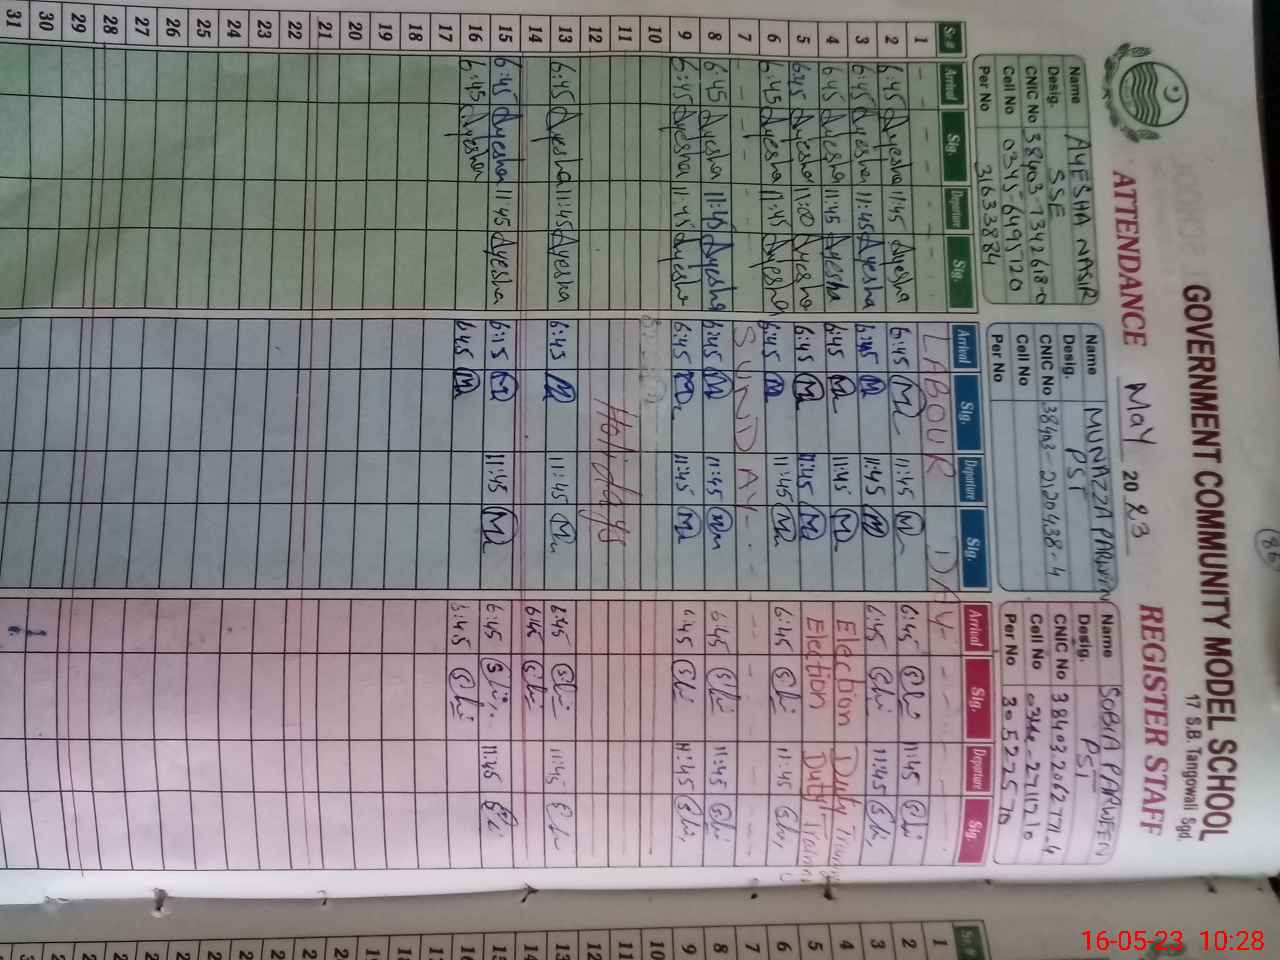 GOVERNMENT COMMUNITY MODEL SCHOOL
17 S.B. Tangowali Sgd.
ATTENDANCE May 2023 REGISTER STAFF
Name AYESHA NASIR
Desig. SSE
CNIC No 38403-7342618-0
Cell No 0345-6495720
Per No 31633884
Name MUNAZZA PARVEEN
Desig. PST
CNIC No 38403-2120438-4
Cell No
Per No
Name SOBYA PARVEEN
Desig. PST
CNIC No 38403 2062771-4
Cell No
Per No
Sr.# Arrival Sig. Departure Sig. Arrival Sig. Departure Sig. Arrival Sig. Departure Sig.
1 LABOUR DAY
2 6:45 Ayesha 11:45 Ayesha 6:45 11:45 6:45 11:45
3 6:45 Ayesha 11:45 Ayesha 6:45 11:45 6:45 11:45
4 6:45 Ayesha 11:45 Ayesha 6:45 11:45 Election Duty
5 6:45 Ayesha 11:00 Ayesha 6:45 11:45 Election Duty
6 6:45 Ayesha 11:45 Ayesha 6:45 11:45 6:45 11:45
7 SUNDAY
8 6:45 Ayesha 11:45 Ayesha 6:45 11:45 6:45 11:45
9 6:45 Ayesha 11:45 Ayesha 6:45 11:45 6:45 11:45
10
11 Holidays
12
13 6:45 Ayesha 11:45 Ayesha 6:45 11:45 6:45 11:45
14 6:45
15 6:45 Ayesha 11:45 Ayesha 6:45 11:45 6:45 11:45
16 6:45 Ayesha 6:45
17
18
19
20
21
22
23
24
25
26
27
28
29
30
31
86
Sr.#
1
2
3
4
5
6
7
8
9
10
11
12
13
14
15
16-05-23 10:28